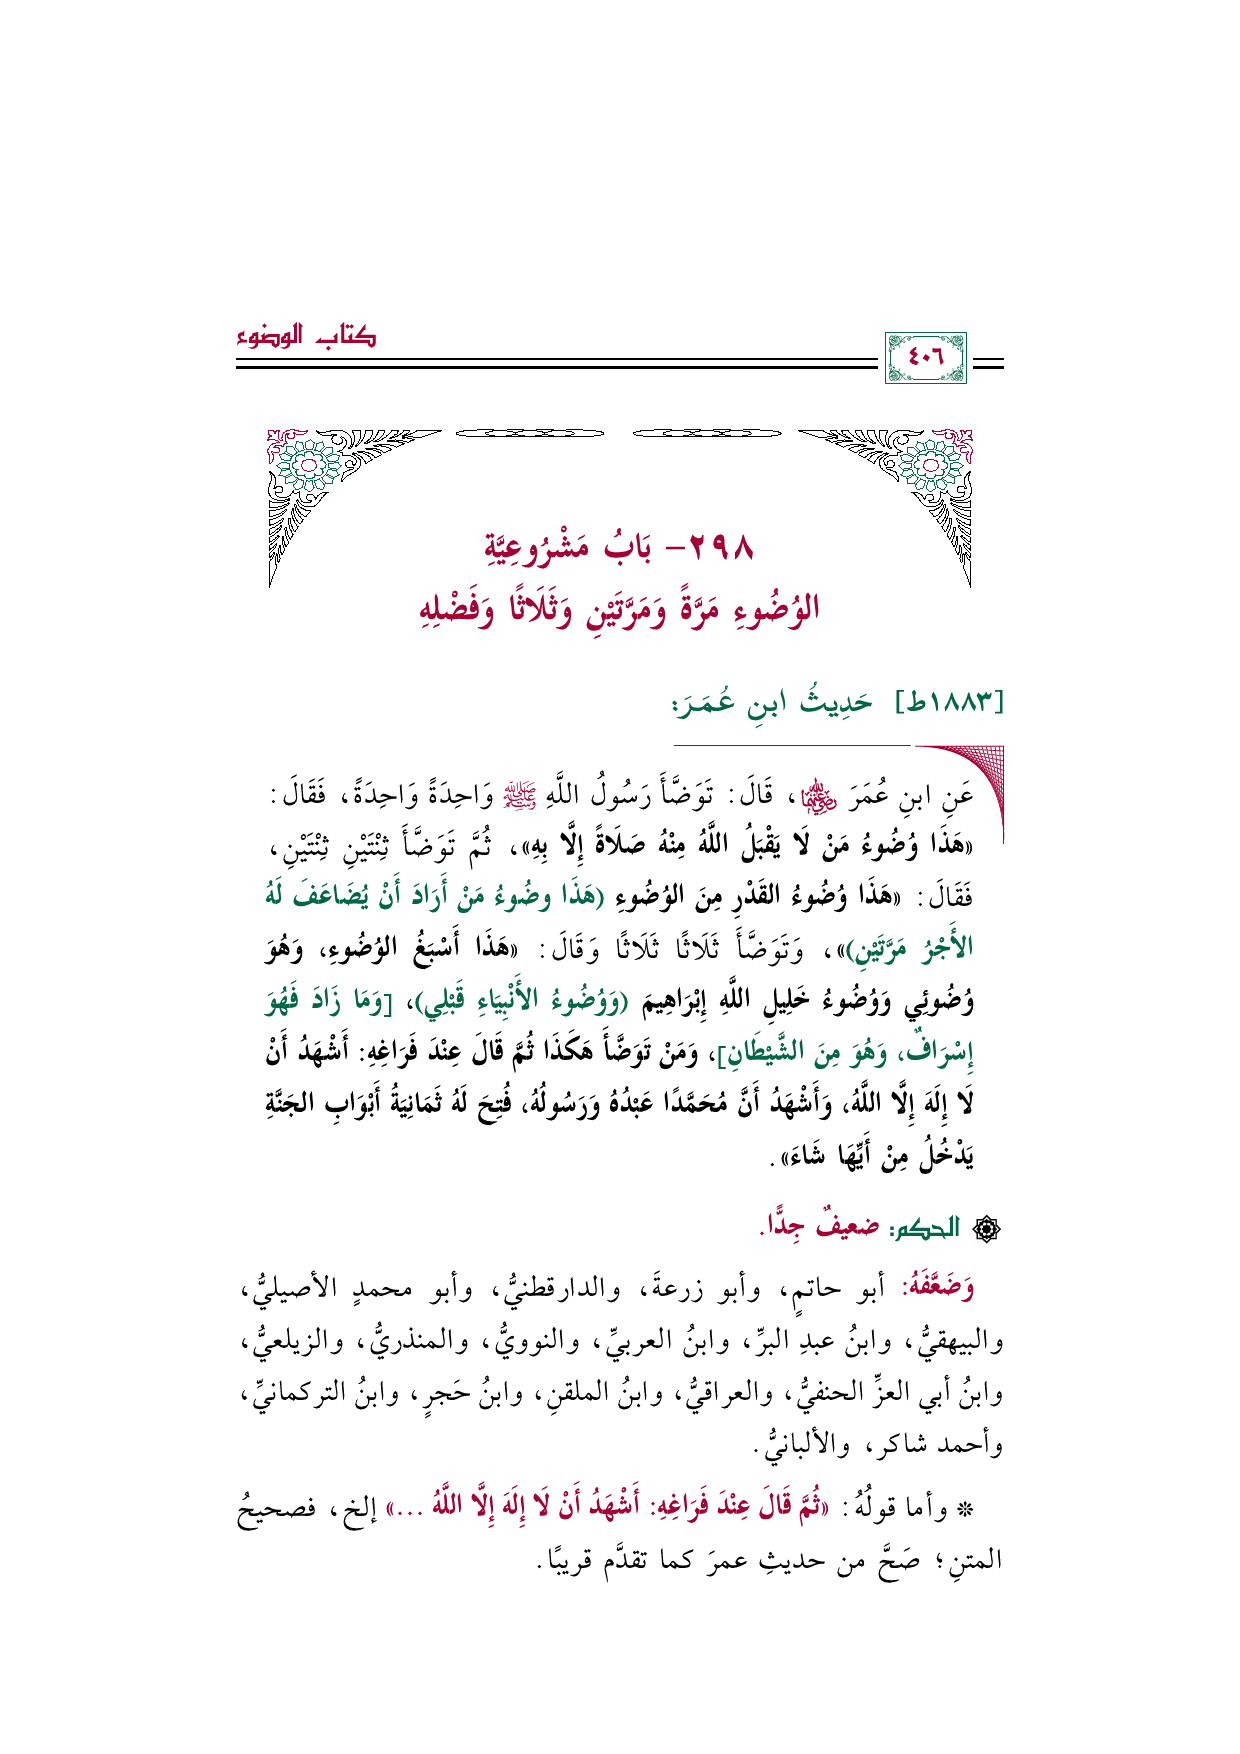 كتاب الوضوء
٤٠٦
٢٩٨- بَابُ مَشْرُوعِيَّةِ
الوُضُوءِ مَرَّةً وَمَرَّتَيْنِ وَثَلَاثًا وَفَضْلِهِ
[١٨٨٣ط] حَدِيثُ ابنِ عُمَرَ:
عَنِ ابنِ عُمَرَ رضي الله عنهما، قَالَ: تَوَضَّأَ رَسُولُ اللَّهِ ﷺ وَاحِدَةً وَاحِدَةً، فَقَالَ:
«هَذَا وُضُوءُ مَنْ لَا يَقْبَلُ اللَّهُ مِنْهُ صَلَاةً إِلَّا بِهِ»، ثُمَّ تَوَضَّأَ ثِنْتَيْنِ ثِنْتَيْنِ،
فَقَالَ: «هَذَا وُضُوءُ القَدْرِ مِنَ الوُضُوءِ (هَذَا وضُوءُ مَنْ أَرَادَ أَنْ يُضَاعَفَ لَهُ
الأَجْرُ مَرَّتَيْنِ)»، وَتَوَضَّأَ ثَلَاثًا ثَلَاثًا وَقَالَ: «هَذَا أَسْبَغُ الوُضُوءِ، وَهُوَ
وُضُوئِي وَوُضُوءُ خَلِيلِ اللَّهِ إِبْرَاهِيمَ (وَوُضُوءُ الأَنْبِيَاءِ قَبْلِي)، [وَمَا زَادَ فَهُوَ
إِسْرَافٌ، وَهُوَ مِنَ الشَّيْطَانِ]، وَمَنْ تَوَضَّأَ هَكَذَا ثُمَّ قَالَ عِنْدَ فَرَاغِهِ: أَشْهَدُ أَنْ
لَا إِلَهَ إِلَّا اللَّهُ، وَأَشْهَدُ أَنَّ مُحَمَّدًا عَبْدُهُ وَرَسُولُهُ، فُتِحَ لَهُ ثَمَانِيَةُ أَبْوَابِ الجَنَّةِ
يَدْخُلُ مِنْ أَيِّهَا شَاءَ».
الحكم: ضعيفٌ جِدًّا.
وَضَعَّفَهُ: أبو حاتمٍ، وأبو زرعةَ، والدارقطنيُّ، وأبو محمدٍ الأصيليُّ،
والبيهقيُّ، وابنُ عبدِ البرِّ، وابنُ العربيِّ، والنوويُّ، والمنذريُّ، والزيلعيُّ،
وابنُ أبي العزِّ الحنفيُّ، والعراقيُّ، وابنُ الملقنِ، وابنُ حَجرٍ، وابنُ التركمانيِّ،
وأحمد شاكر، والألبانيُّ.
* وأما قولُهُ: «ثُمَّ قَالَ عِنْدَ فَرَاغِهِ: أَشْهَدُ أَنْ لَا إِلَهَ إِلَّا اللَّهُ ...» إلخ، فصحيحُ
المتنِ؛ صَحَّ من حديثِ عمرَ كما تقدَّم قريبًا.